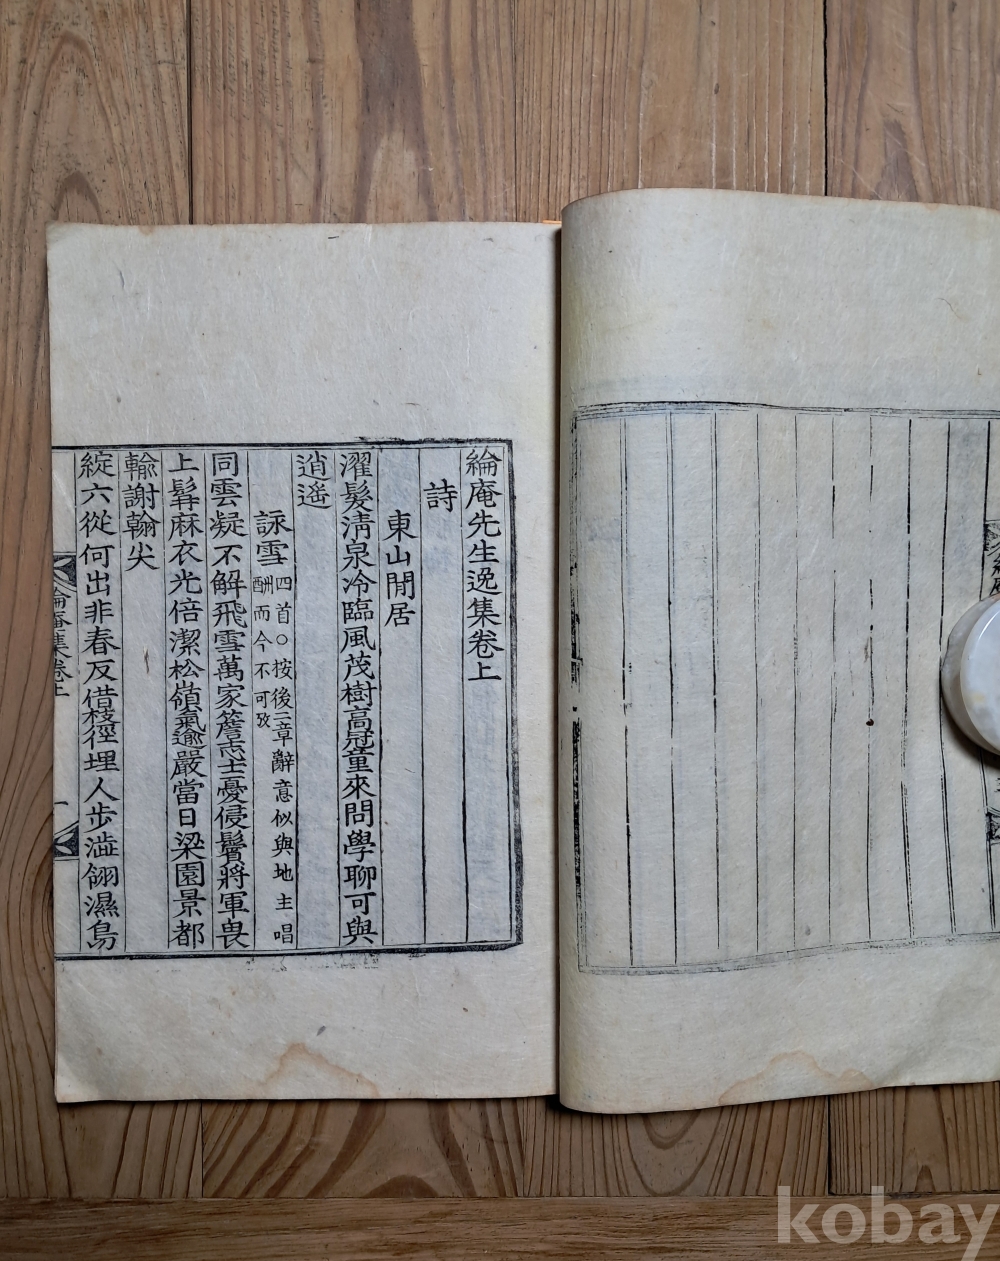 綸庵先生逸集卷上
詩
東山閒居
濯髮淸泉冷臨風茂樹高冠童來問學聊可與
逍遙
詠雪 四首○按後三章辭意似與地主唱
酬而今不可攷
同雲凝不解飛雪萬家簷志士憂侵鬢將軍畏
上髯麻衣光倍潔松嶺氣逾嚴當日梁園景都
輸謝翰尖
綻六從何出非春反借枝徑埋人步澁翎濕鳥
綸庵集卷上
一
kobay